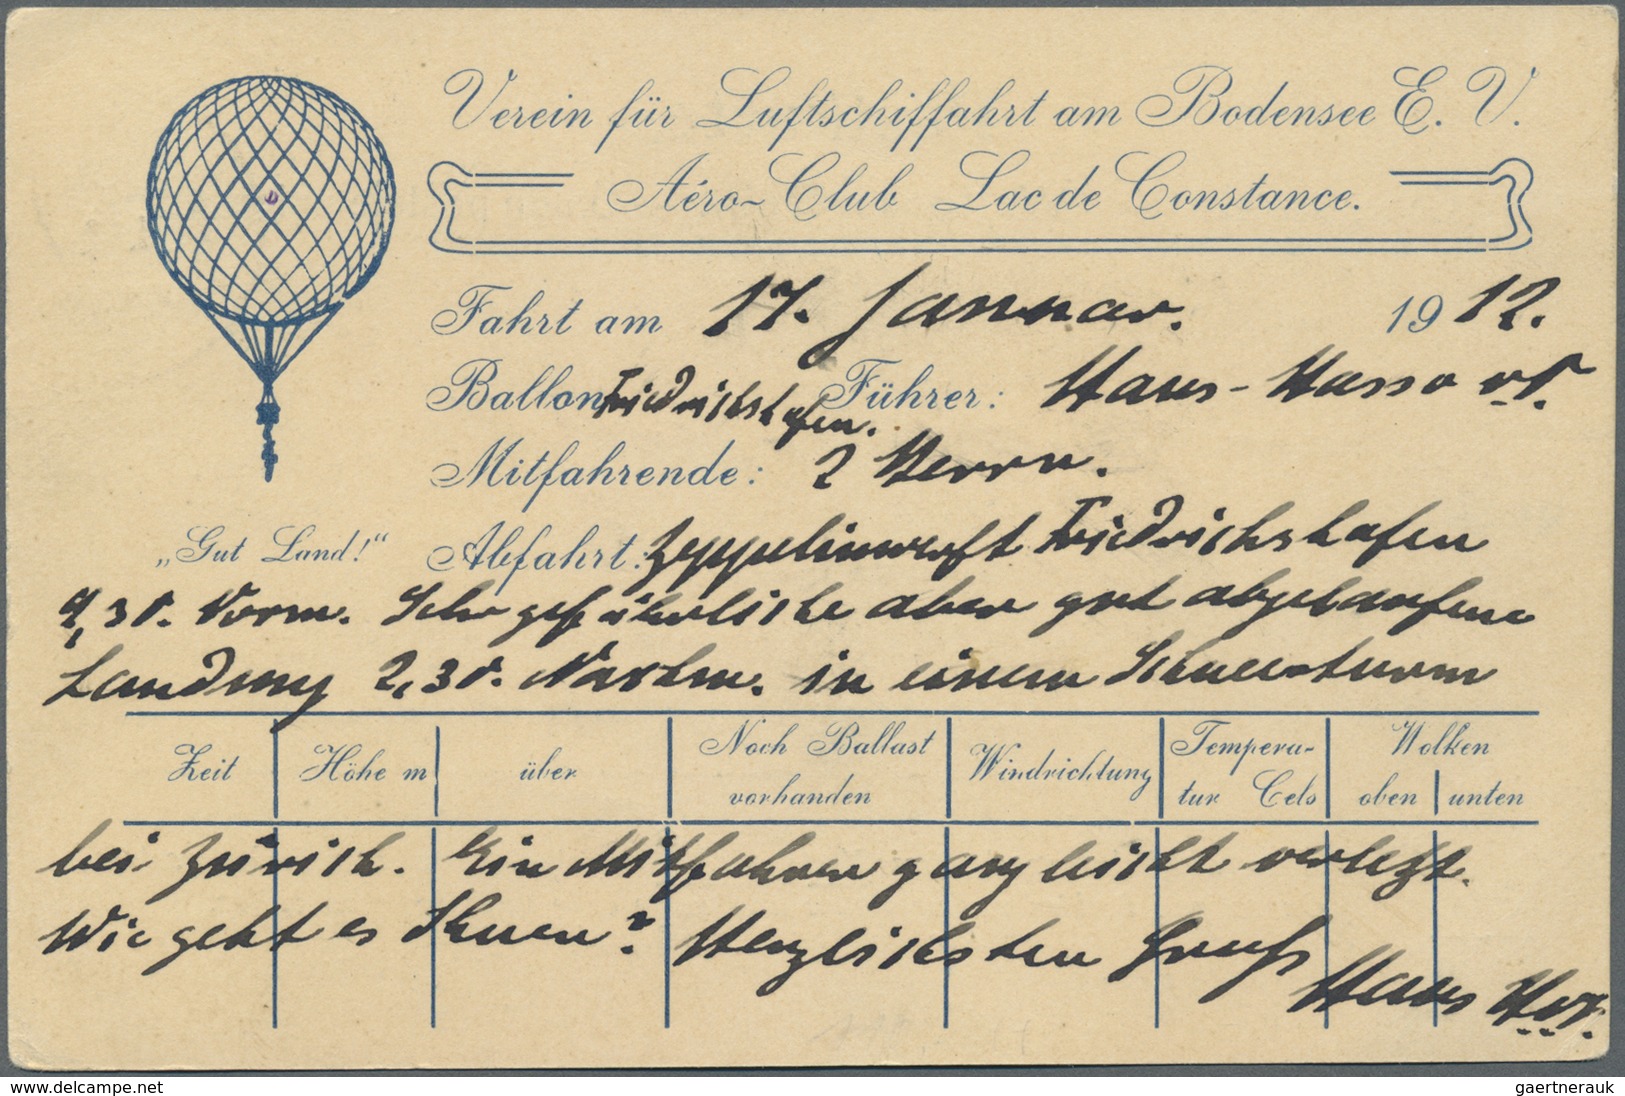 Verein für Luftschiffahrt am Bodensee E. V.
Aéro-Club Lac de Constance.
Fahrt am 17. Januar. 1912.
Ballon Friedrichshafen. Führer: Hans-Hasso v.
Mitfahrende: 2 Herrn.
„Gut Land!“ Abfahrt: Zeppelinwerft Friedrichshafen
9,30. Vorm. Sehr gefährliche aber gut abgelaufene
Landung 2,30. Nachm. in einem Schneesturm
Zeit Höhe m über Noch Ballast vorhanden Windrichtung Tempera-tur Cels Wolken oben unten
bei Zürich. Ein Mitfahrer ganz leicht verletzt.
Wie geht es Ihnen? Herzlichsten Gruß
Hans H.
www.delcampe.net
gaertnerauk